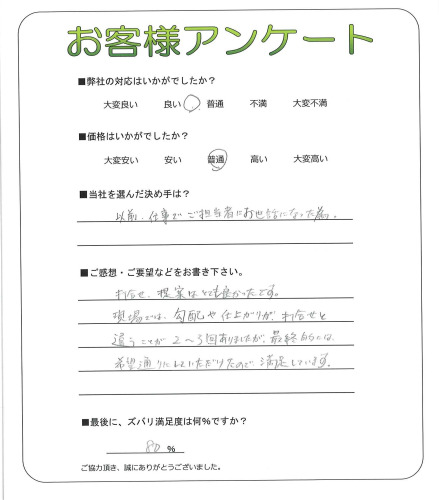 お客様アンケート
■弊社の対応はいかがでしたか？
大変良い 良い 普通 不満 大変不満
■価格はいかがでしたか？
大変安い 安い 普通 高い 大変高い
■当社を選んだ決め手は？
以前、仕事でご担当者にお世話になった為。
■ご感想・ご要望などをお書き下さい。
打合せ、提案はとても良かったです。
現場では、勾配や仕上がりが、打合せと
違うことが2〜3回ありましたが、最終的には、
希望通りにしていただけたので、満足しています。
■最後に、ズバリ満足度は何％ですか？
80 ％
ご協力頂き、誠にありがとうございました。